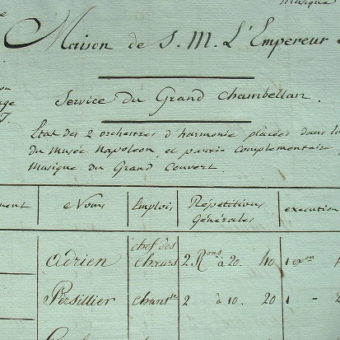 Musique
Maison de S. M. L'Empereur
Service du Grand Chambellan.
Etat des 2 orchestres d'harmonie placées dans la
du Musée Napoleon, et partie Complementaire
Musique du Grand Couvert.
Noms Emplois Répétitions Générales execution
adrien chef des Chœurs 2 Rons à 20. 40 1
Persillier Chantr 2 à 10. 20 1